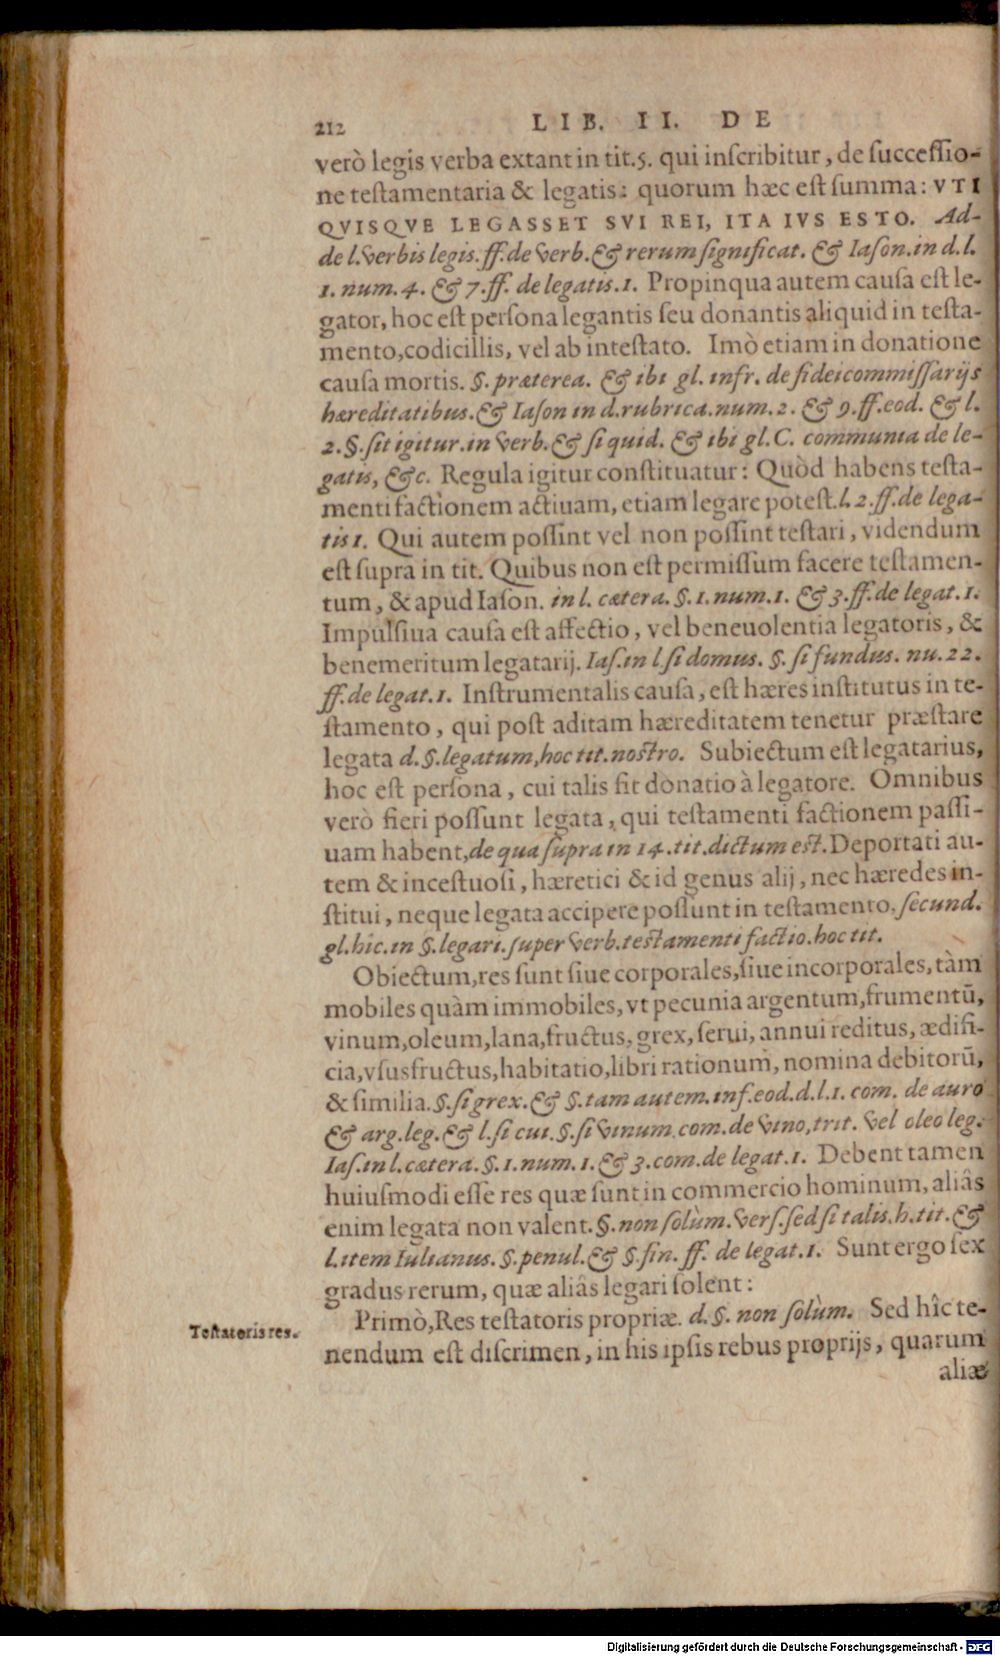 212 LIB. II. DE
verò legis verba extant in tit.5. qui inſcribitur, de ſucceſſio-
ne teſtamentaria & legatis: quorum hæc eſt ſumma: VTI
QVISQVE LEGASSET SVI REI, ITA IVS ESTO. Ad-
de l.verbis legis.ff.de verb.& rerum ſignificat. & Iaſon.in d.l.
1. num.4. & 7.ff. de legatis.1. Propinqua autem cauſa eſt le-
gator, hoc eſt perſona legantis ſeu donantis aliquid in teſta-
mento,codicillis, vel ab inteſtato. Imò etiam in donatione
cauſa mortis. §. præterea. & ibi gl. infr. de fideicommiſſarijs
hæreditatibus.& Iaſon in d.rubrica.num.2. & 9.ff.eod. & l.
2.§.ſit igitur.in verb.& ſi quid. & ibi gl.C. communia de le-
gatis, &c. Regula igitur conſtituatur: Quòd habens teſta-
menti factionem actiuam, etiam legare poteſt.l.2.ff.de lega-
tis 1. Qui autem poſſint vel non poſſint teſtari, videndum
eſt ſuprà in tit. Quibus non eſt permiſſum facere teſtamen-
tum, & apud Iaſon. in l. cætera.§.1.num.1. & 3.ff.de legat.1.
Impulſiua cauſa eſt affectio, vel beneuolentia legatoris, &
benemeritum legatarij. Iaſ.in l.ſi domus. §. ſi fundus. nu.22.
ff.de legat.1. Inſtrumentalis cauſa, eſt hæres inſtitutus in te-
ſtamento, qui poſt aditam hæreditatem tenetur præſtare
legata d.§.legatum,hoc tit.noſtro. Subiectum eſt legatarius,
hoc eſt perſona, cui talis fit donatio à legatore. Omnibus
verò fieri poſſunt legata, qui teſtamenti factionem paſſi-
uam habent,de qua ſupra in 14.tit.dictum eſt.Deportati au-
tem & inceſtuoſi, hæretici & id genus alij, nec hæredes in-
ſtitui, neque legata accipere poſſunt in teſtamento.ſecund.
gl.hic.in §.legari.ſuper verb.teſtamenti factio.hoc tit.
Obiectum,res ſunt ſiue corporales,ſiue incorporales,tàm
mobiles quàm immobiles, vt pecunia argentum,frumentū,
vinum,oleum,lana,fructus, grex, ſerui, annui reditus, ædifi-
cia,vſusfructus,habitatio,libri rationum, nomina debitorū,
& ſimilia.§.ſi grex.& §.tam autem.inf.eod.d.l.1. com. de auro
& arg.leg.& l.ſi cui.§.ſi vinum.com.de vino,trit. vel oleo leg.
Iaſ.in l.cætera.§.1.num.1.& 3.com.de legat.1. Debent tamen
huiuſmodi eſſe res quæ ſunt in commercio hominum, aliâs
enim legata non valent.§.non ſolùm.verſ.ſed ſi talis.h.tit.&
l.item Iulianus. §.penul.& §.fin. ff. de legat.1. Sunt ergo ſex
gradus rerum, quæ aliâs legari ſolent:
Teſtatoris res. Primò,Res teſtatoris propriæ. d.§. non ſolùm. Sed hîc te-
nendum eſt diſcrimen, in his ipſis rebus proprijs, quarum
aliæ
Digitalisierung gefördert durch die Deutsche Forschungsgemeinschaft - DFG